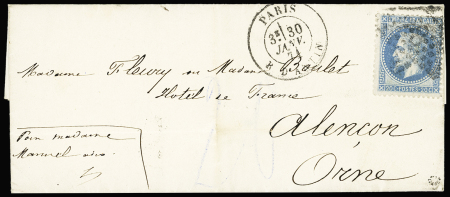 PARIS
3E 30
JANV.
71
Madame Fleury ou Madame Boulat
Hotel de France
Alençon
Orne
Pour madame
Manuel